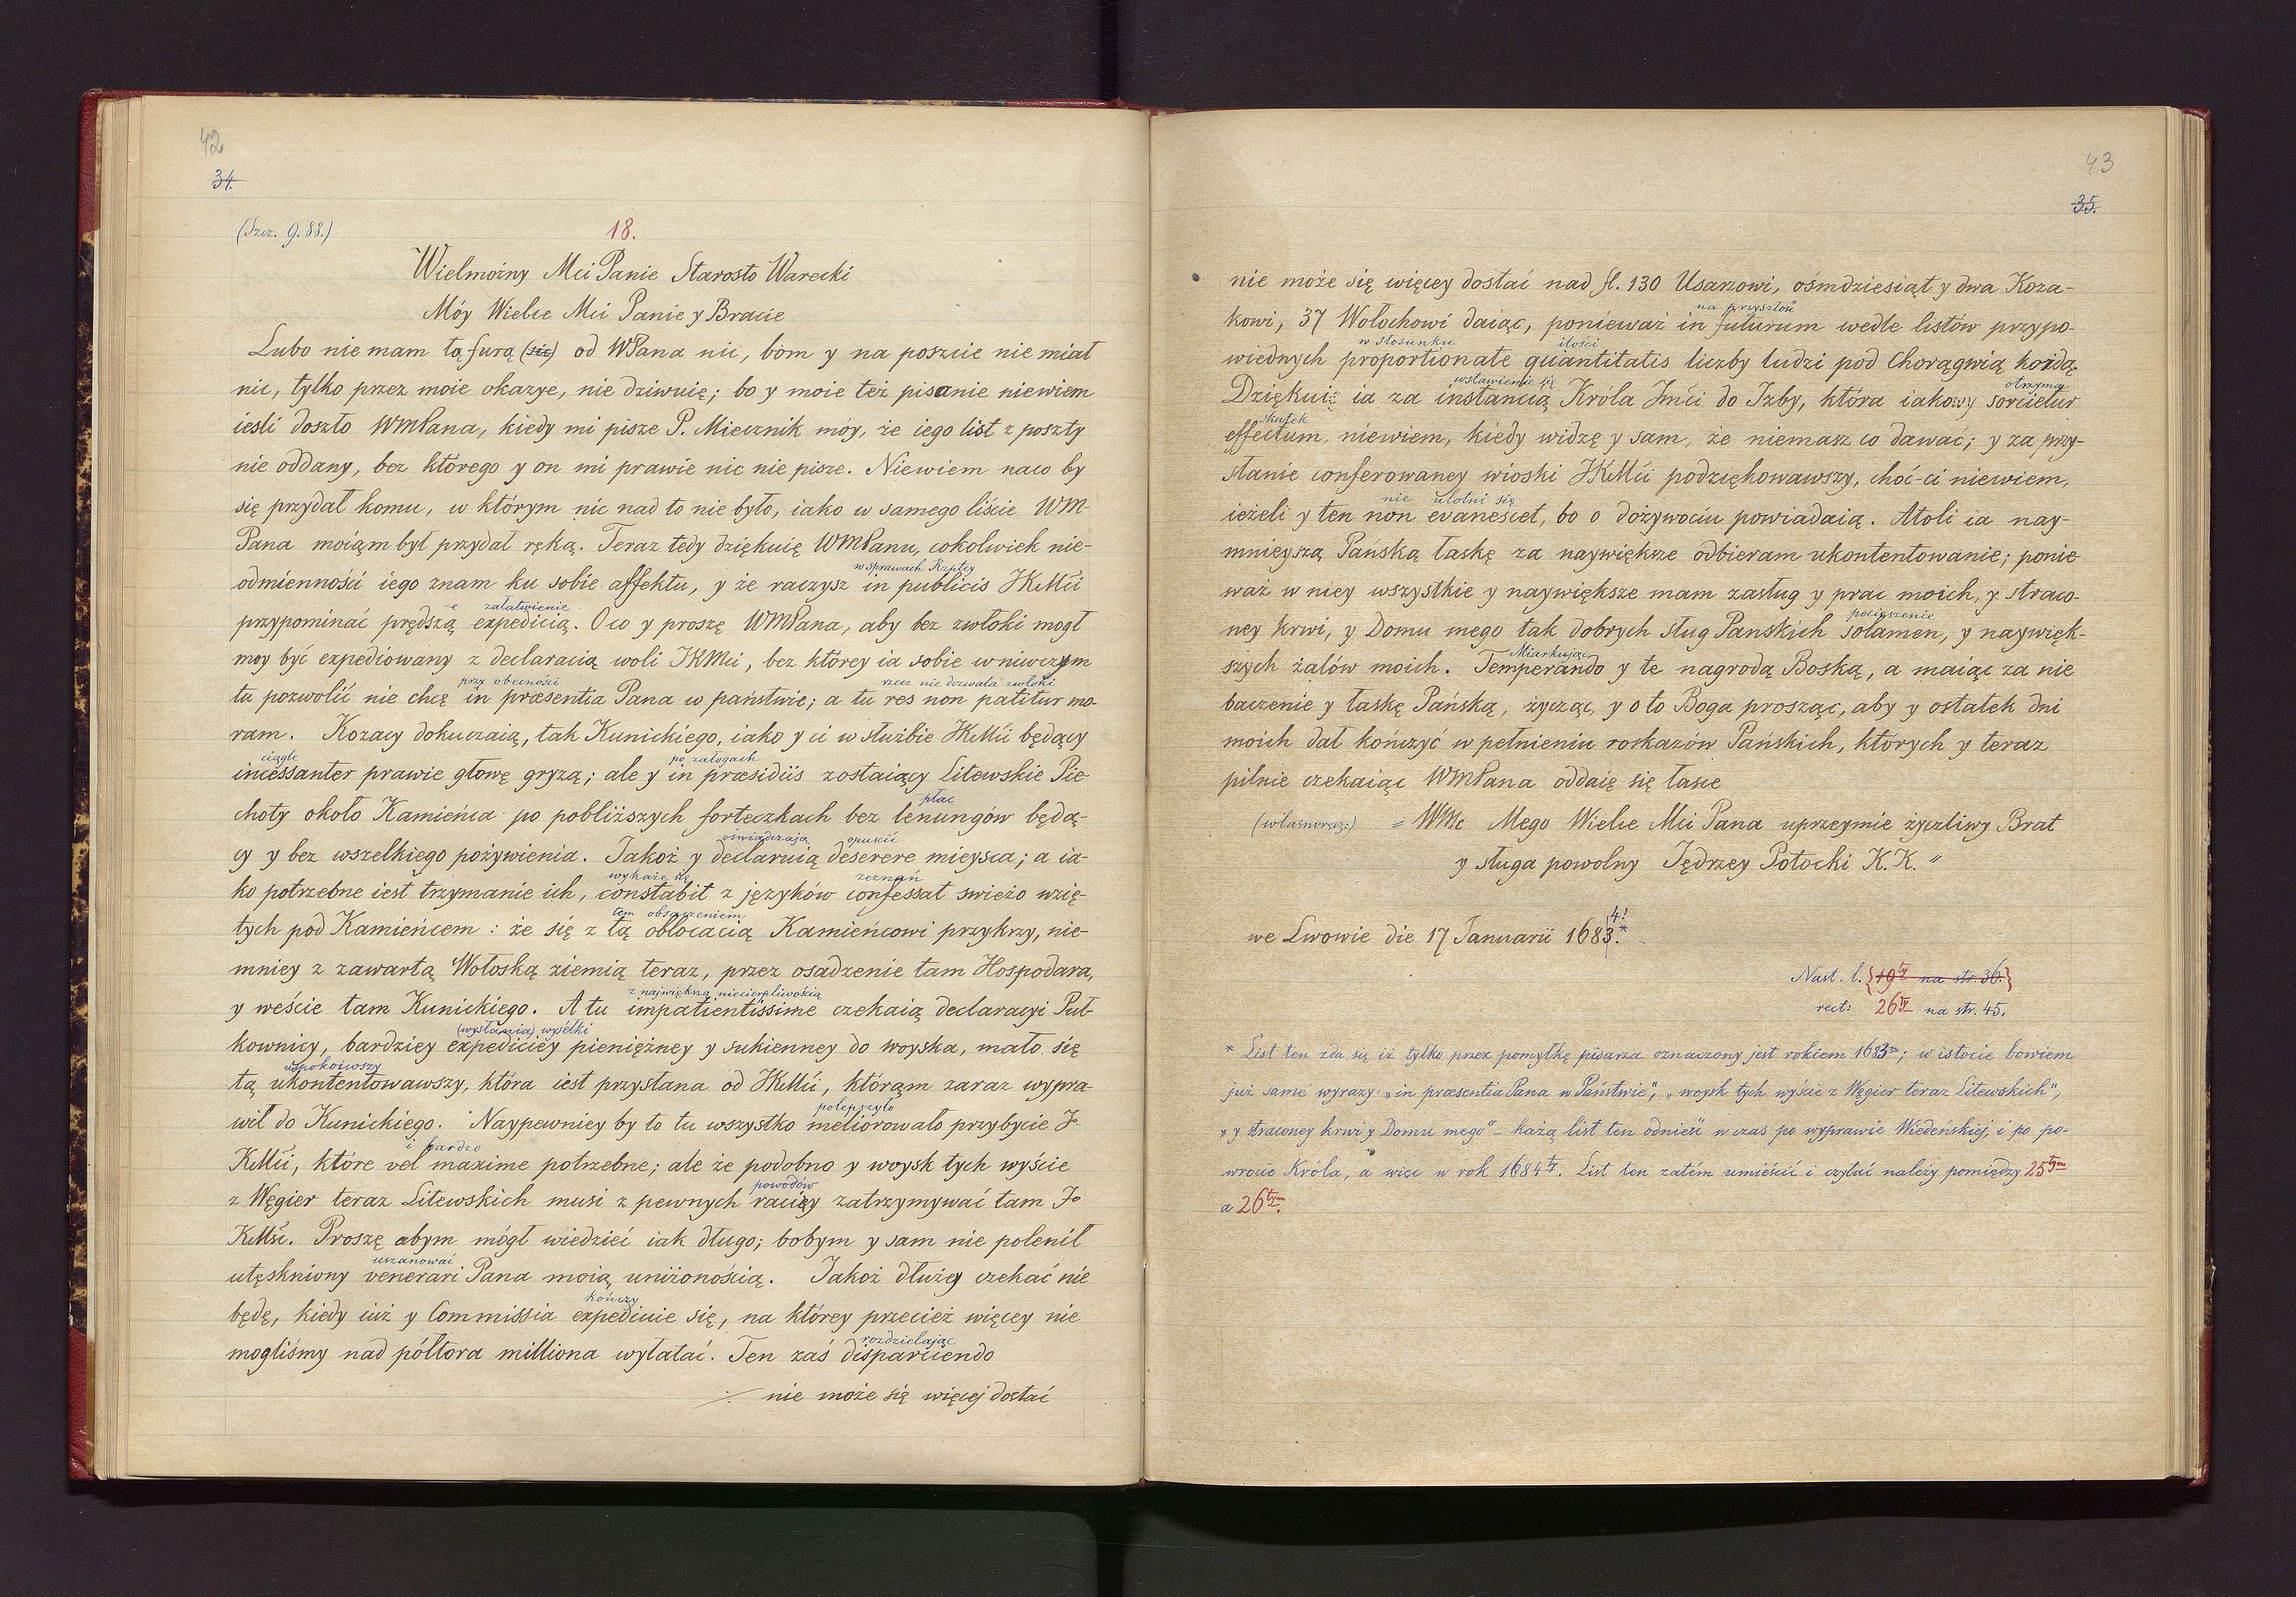 42
34.
(Szcz. 9. 88.)
18.
Wielmożny Mci Panie Starosto Warecki
Móy Wielce Mci Panie y Bracie
Lubo nie mam tą furą (sic) od WPana nic, bom y na poszcie nie miał
nic, tylko przez moie okazye, nie dziwuię; bo y moie też pisanie niewiem
iesli doszło WMPana, kiedy mi pisze P. Miecznik moy, że iego list z poszty
nie oddany, bez którego y on mi prawie nic nie pisze. Niewiem naco by
się przydał komu, w którym nic nad to nie było, iako w samego liście WM-
Pana moiąm był przydał ręką. Teraz tedy dziękuię WMPanu, cokolwiek nie-
w sprawach Rzpltey
odmienności iego znam ku sobie affektu, y że raczysz in publicis JKMći
e załatwienie
przypominać prędszą expedicią. O co y proszę WMPana, aby bez zwłoki mogł
moy być expediowany z declaracią woli JKMci, bez którey ia sobie wniwczym
przy obecności rzecz nie dozwala zwłoki
tu pozwolić nie chcę in præsentia Pana w państwie; a tu res non patitur mo-
ram. Kozacy dokuczaią, tak Kunickiego, iako y ci w służbie JKMći będący
ciągle po załogach
incessanter prawie głowę gryzą; ale y in præsidiis zostaiący Litewskie Pie-
płac
choty około Kamieńca po pobliższych forteczkach bez lenungów będą-
oświadczają opuścić
cy y bez wszelkiego pożywienia. Jakoż y declaruią deserere mieysca; a ia-
wykaże się zeznań
ko potrzebne iest trzymanie ich, constabit z języków confessat swieżo wzię-
tem obsaczeniem
tych pod Kamieńcem : że się z tą oblocacią Kamieńcowi przykrzy, nie-
mniey z zawartą Wołoską ziemią teraz, przez osadzenie tam Hospodara,
z największą niecierpliwością
y weście tam Kunickiego. A tu impatientissime czekaią declaracyi Puł-
(wysłania) wysełki
kownicy, bardziey expediciey pieniężney y sukienney do woyska, mało się
uspokoiwszy
tą ukontentowawszy, która iest przysłana od JKMći, którąm zaraz wypra-
polepszyło
wił do Kunickiego. Naypewniey by to tu wszystko meliorowało przybycie J-
i bardzo
KMći, które vel maxime potrzebne; ale że podobno y woysk tych wyście
powodów
z Węgier teraz Litewskich musi z pewnych raciey zatrzymywać tam J-
KMść. Proszę abym mógł wiedzieć iak długo; bobym y sam nie polenił
uszanować
utęskniony venerari Pana moią uniżonością. Jakoż dłużey czekać nie
kończy
będę, kiedy iuż y Commissia expediuie się, na którey przecież więcey nie
rozdzielając
mogliśmy nad półtora milliona wyłatać. Ten zaś disparciendo
nie może się więcej dostać
43
35.
nie może się więcey dostać nad fl. 130 Usarzowi, ośmdziesiąt y dwa Koza-
na przyszłość
kowi, 37 Wołochowi daiąc, ponieważ in futurum wedle listów przypo-
w stosunku ilości
wiednych proportionate quantitatis liczby ludzi pod Chorągwią każdą.
wstawienie się otrzyma
Dziękuię ia za instancią Króla Jmći do Izby, która iakowy sorcietur
skutek
effectum, niewiem, kiedy widzę y sam, że niemasz co dawać; y za przy-
słanie conferowaney wioski JKMći podziękowawszy, choć-ci niewiem,
nie ulotni się
ieżeli y ten non evanescet, bo o dożywociu powiadaią. Atoli ia nay-
mnieyszą Pańską łaskę za naywiększe odbieram ukontentowanie; ponie
waż w niey wszystkie y naywiększe mam zasług y prac moich, y straco-
pocieszenie
ney krwi, y Domu mego tak dobrych sług Panskich solamen, y naywięk-
Miarkując
szych żalów moich. Temperando y te nagrodą Boską, a maiąc za nie
baczenie y łaskę Pańską, życząc, y o to Boga prosząc, aby y ostatek dni
moich dał kończyć w pełnieniu roskazów Pańskich, których y teraz
pilnie czekaiąc WMPana oddaię się łasce
(własnoręcz:) = WMc Mego Wielce Mci Pana uprzeymie życzliwy Brat
y sługa powolny Jędrzey Potocki K. K. "
4!
we Lwowie die 17 Januarii 1683.*
Nast. l. {19ty na str. 36.}
rect: 26ty na str. 45.
* List ten zda się iż tylko przez pomyłkę pisarza oznaczony jest rokiem 1683m; w istocie bowiem
już same wyrazy: „in præsentia Pana w Państwie", „woysk tych wyście z Węgier teraz Litewskich",
„y straconey krwi y Domu mego" – każą list ten odnieść w czas po wyprawie Wiedeńskiej, i po po-
wrocie Króla, a więc w rok 1684ty. List ten zatém umieścić i czytać należy pomiędzy 25tym
a 26tym.